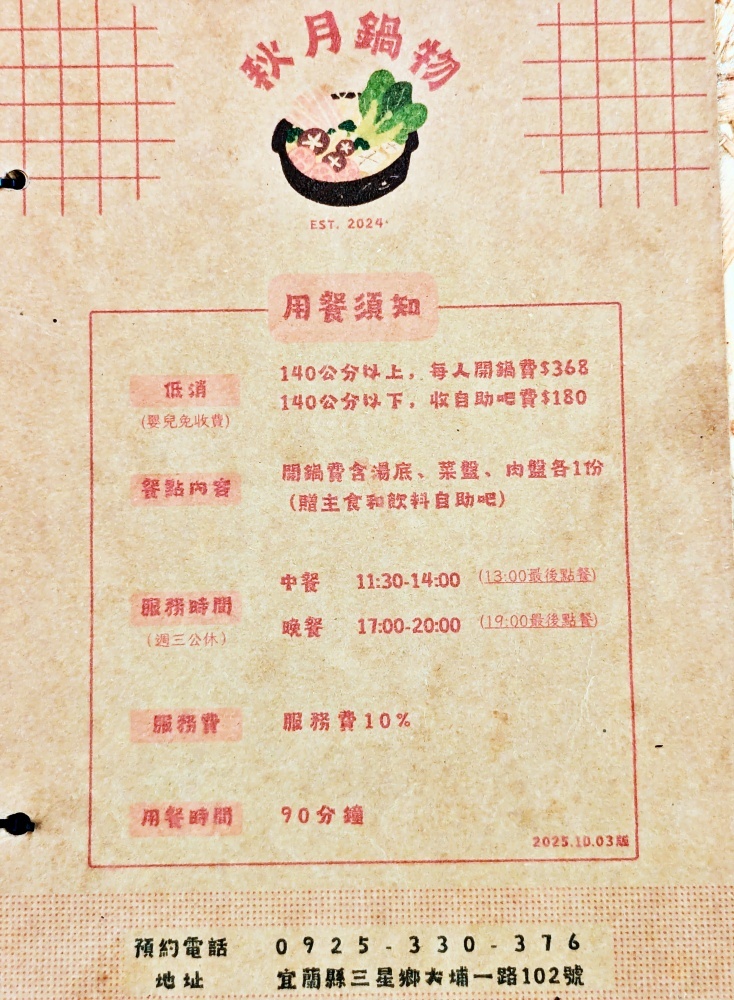 秋月鍋物
EST. 2024
用餐須知
低消
(嬰兒免收費)
140公分以上，每人開鍋費$368
140公分以下，收自助吧費$180
餐點內容
開鍋費含湯底、菜盤、肉盤各1份
（贈主食和飲料自助吧）
服務時間
(週三公休)
中餐 11:30-14:00 (13:00最後點餐)
晚餐 17:00-20:00 (19:00最後點餐)
服務費
服務費10%
用餐時間
90分鐘
2025.10.03版
預約電話 0925-330-376
地址 宜蘭縣三星鄉大埔一路102號